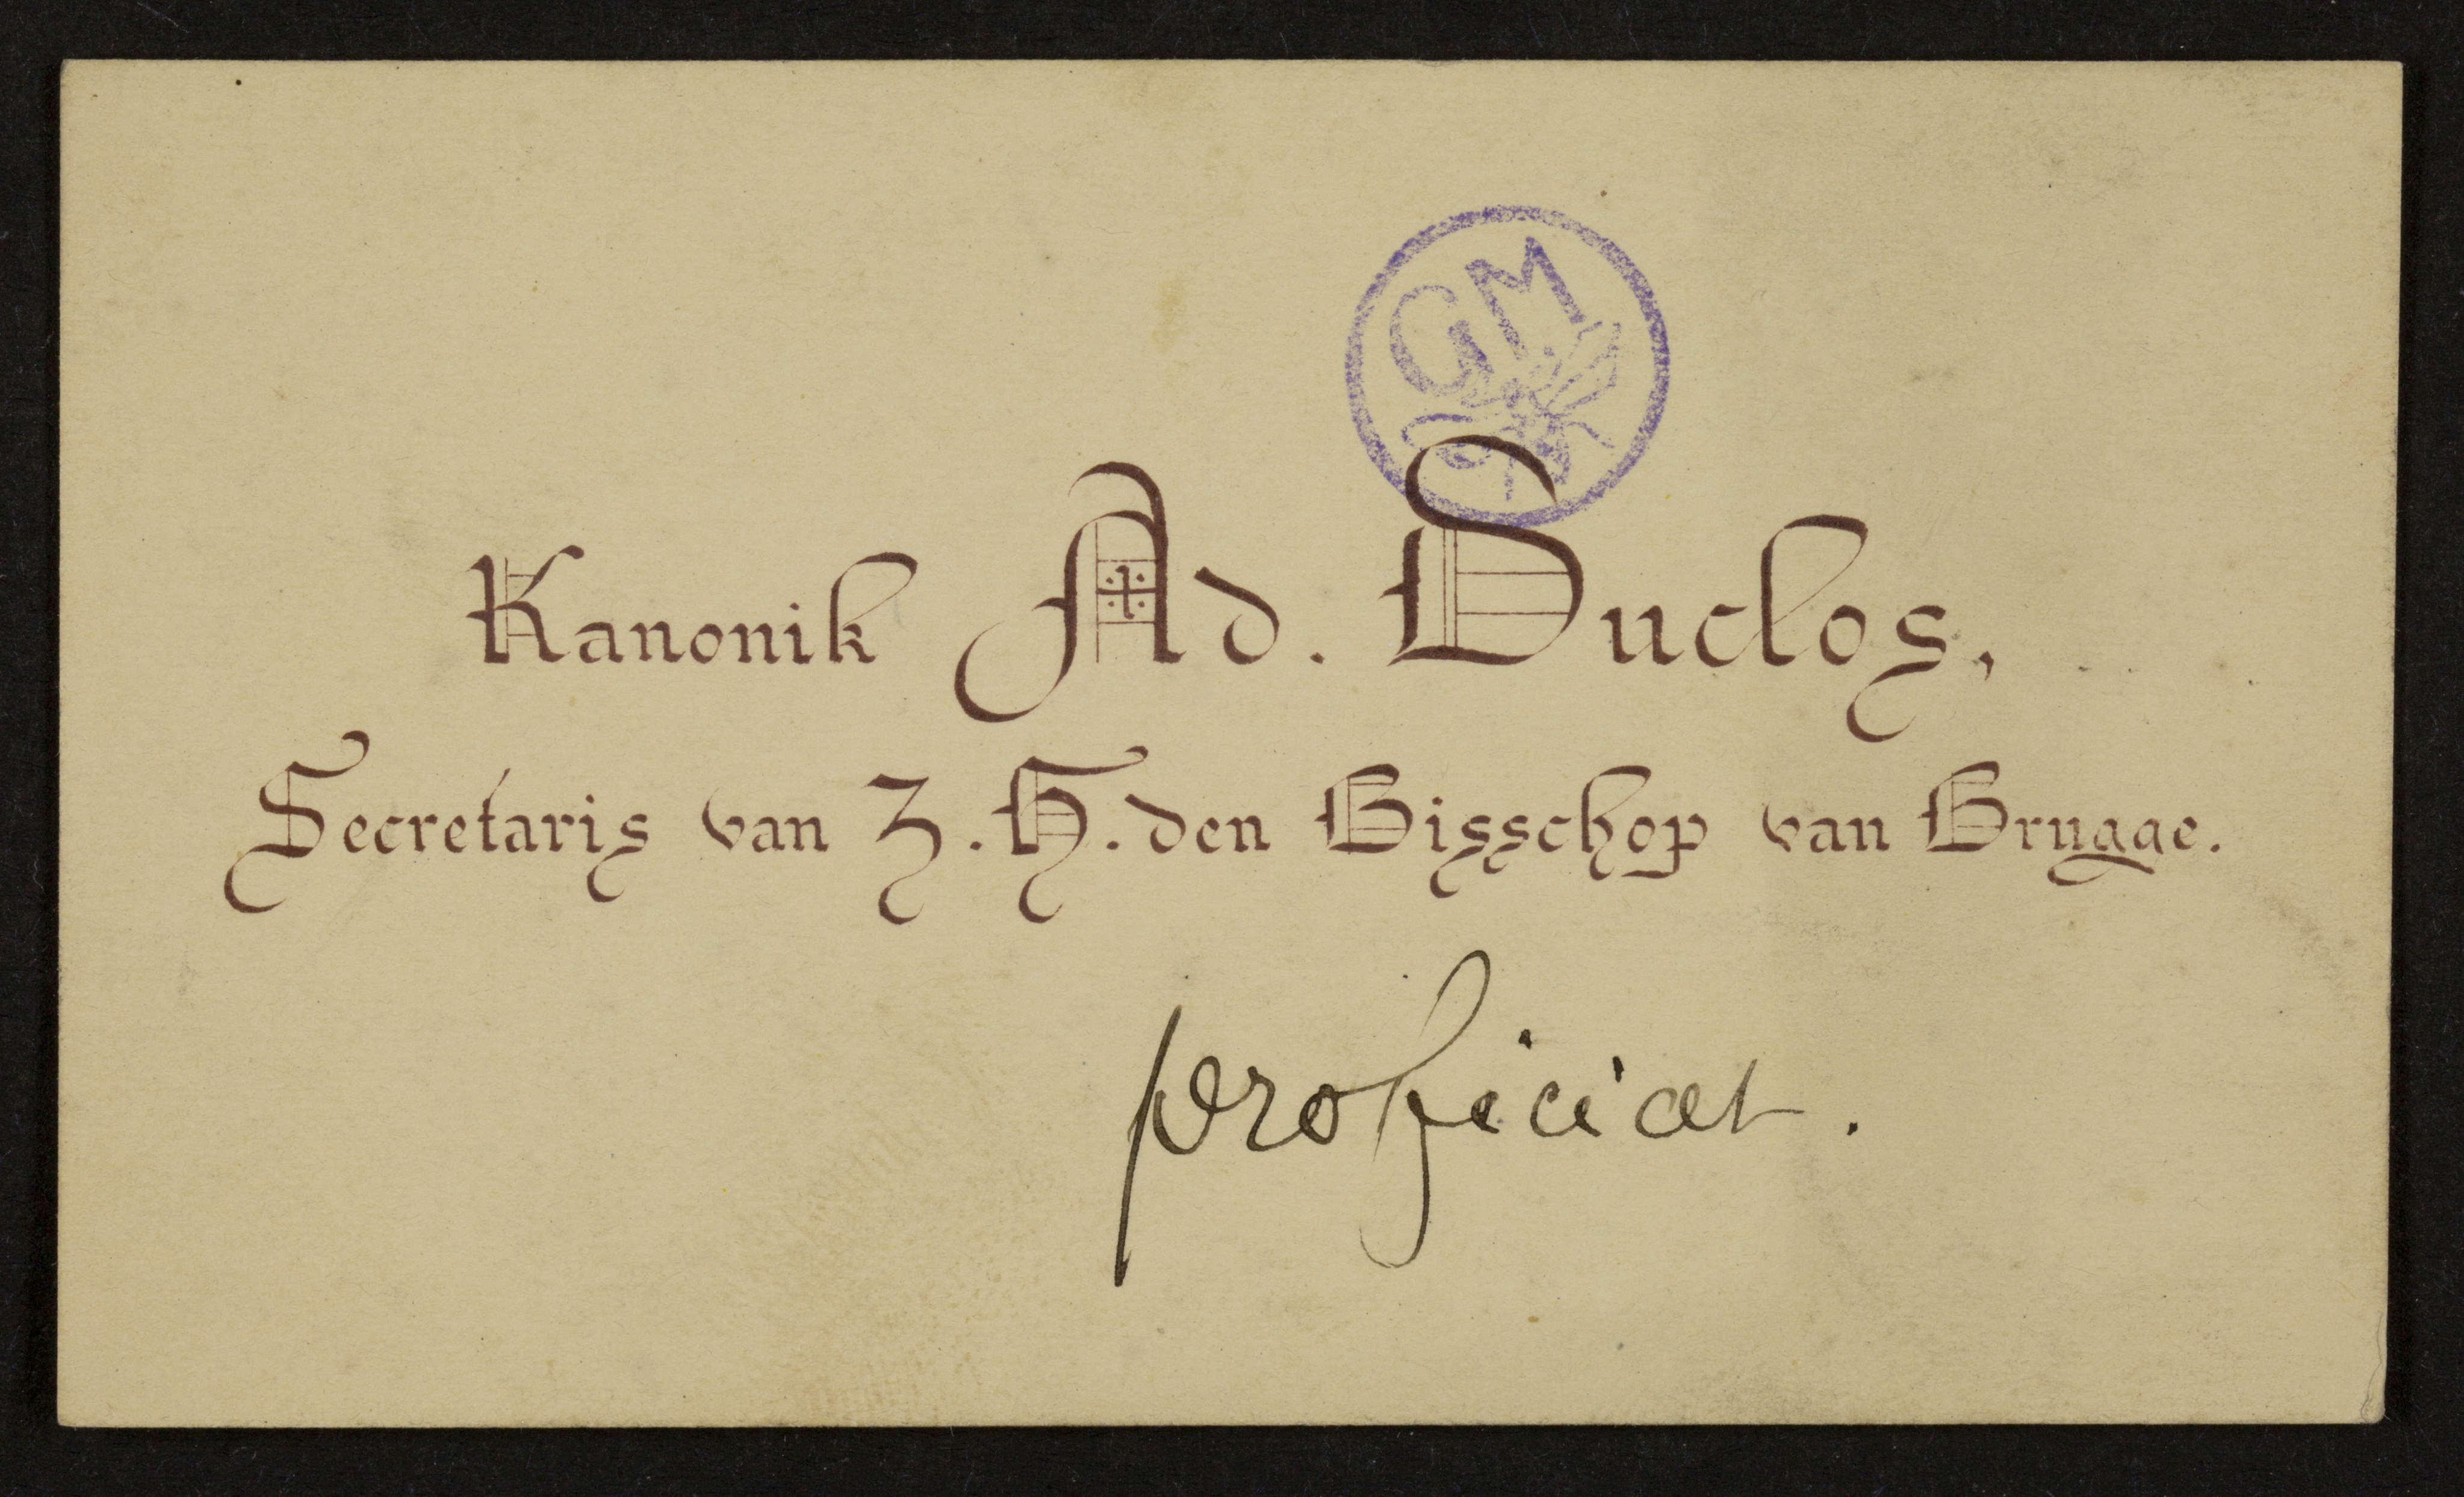 GM
Kanonik Ad. Duclos,
Secretaris van Z. H. den Bisschop van Brugge.
proficiat.